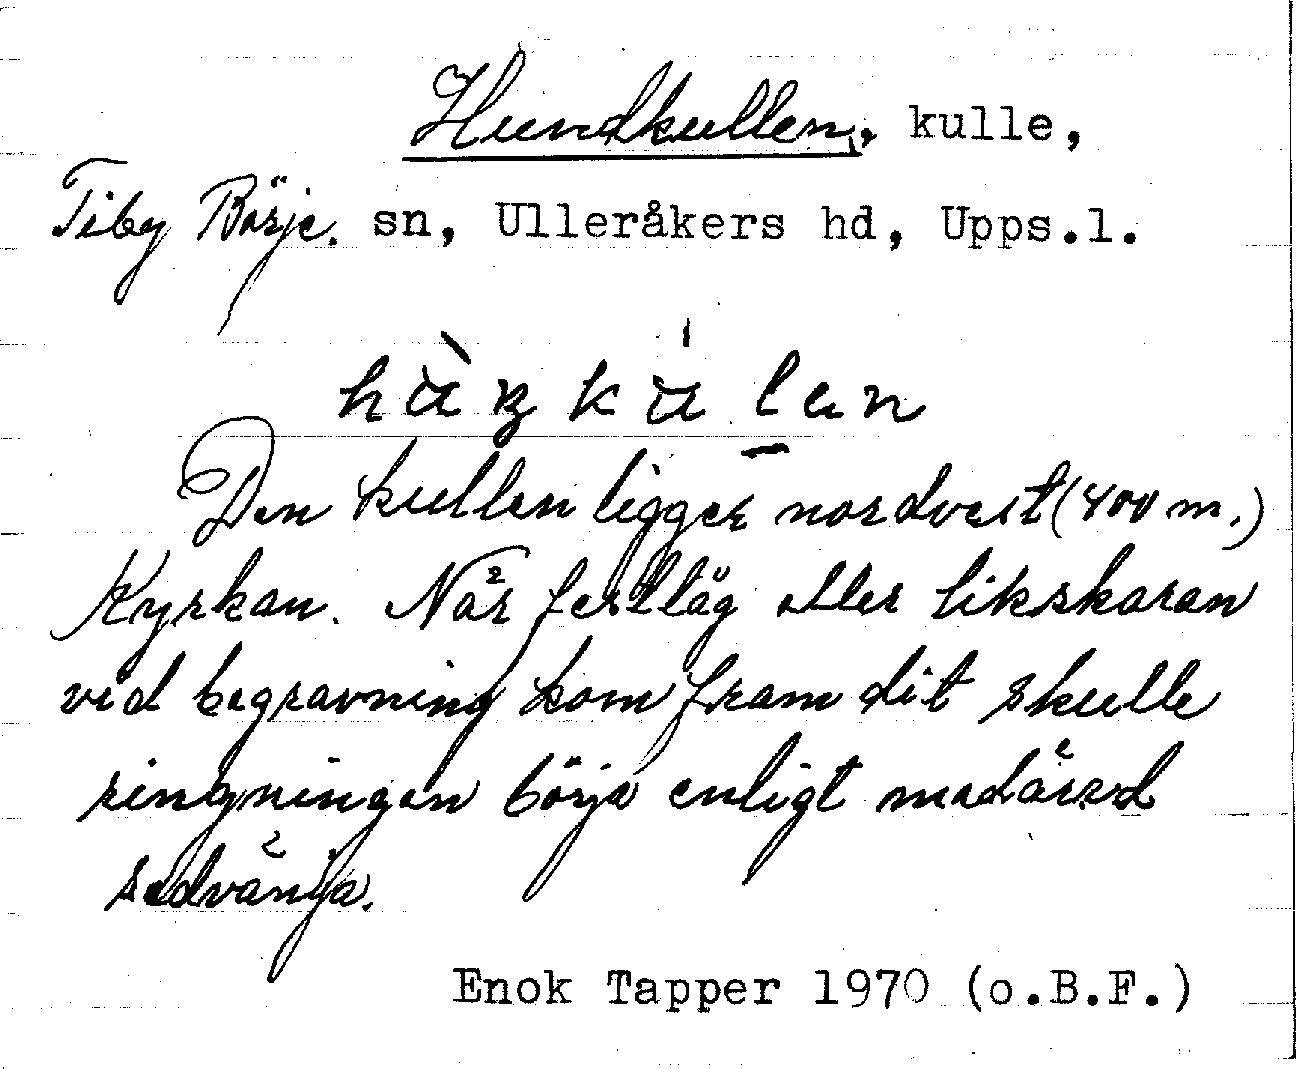 Hundkullen, kulle,
Tiby Börje. sn, Ulleråkers hd, Upps.l.
Den kullen ligger nordvest (400 m.)
Kyrkan. När festtåg eller likskaran
vid begravning kom fram dit skulle
ringningen börja enligt nedärvd
sedvänja.
Enok Tapper 1970 (o.B.F.)